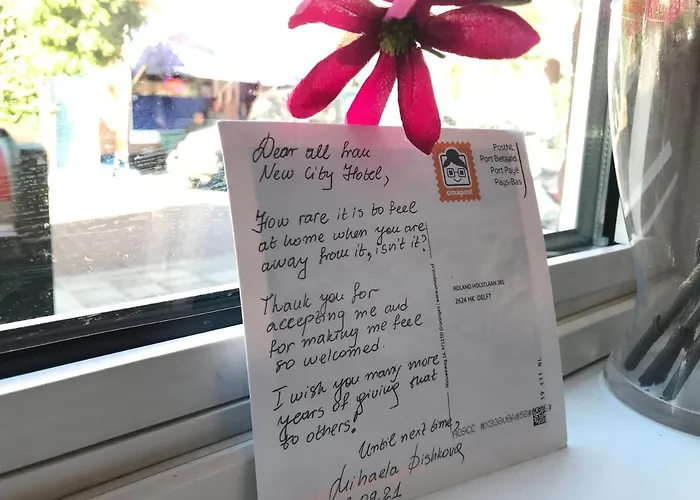 Dear all from
New City Hotel,
How rare it is to feel
at home when you are
away from it, isn't it?
Thank you for
accepting me and
for making me feel
so welcomed.
I wish you many more
years of giving that
to others!
Until next time,
Mihaela Dishkova
omapost
PostNL
Port Betaald
Port Payé
Pays-Bas
ROLAND HOLSTLAAN 381
2624 HK DELFT